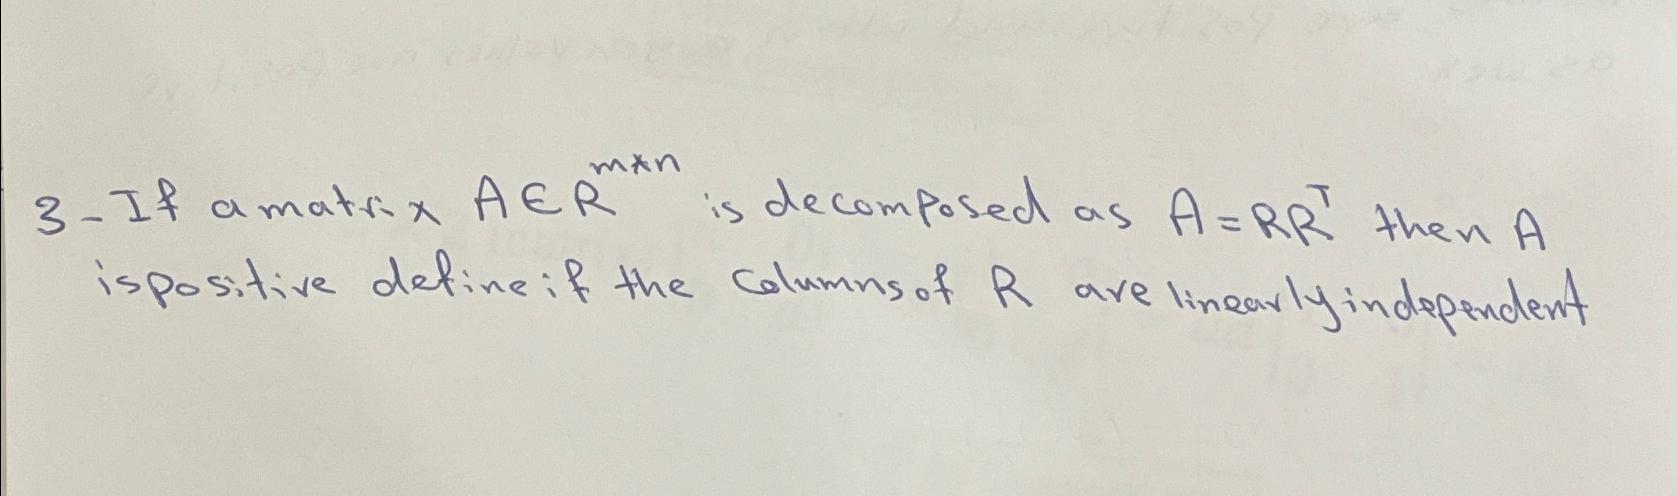 3-If a matrix A∈R^{m*n} is decomposed as A=RR^T then A
is positive define if the columns of R are linearly independent